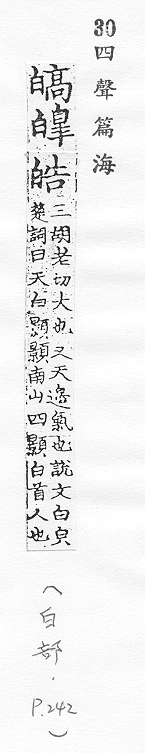 30四聲篇海
皜
皞
皓
三胡老切大也又天邊氣也說文白皃
楚詞曰天白顥顥南山四顥白首人也
(白部.
P.242)